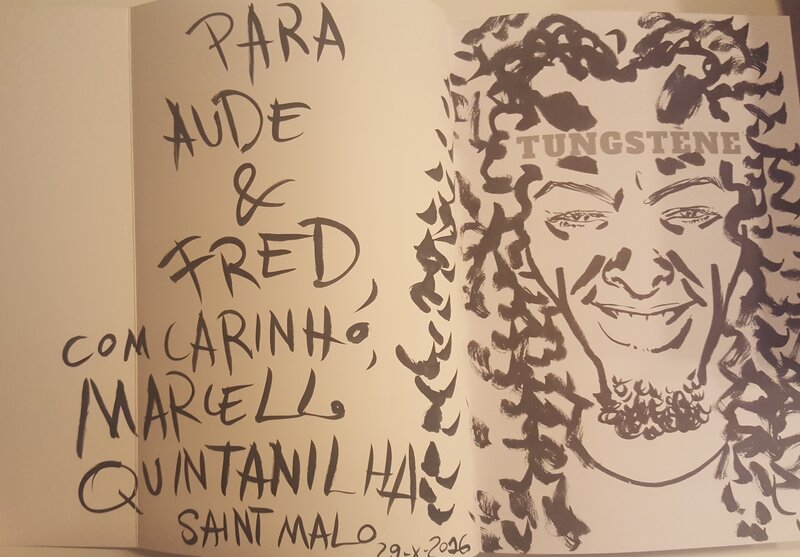 PARA
AUDE
&
FRED,
COM CARINHO,
MARCELLO
QUINTANILHA
SAINT MALO
29-X-2016
TUNGSTÈNE